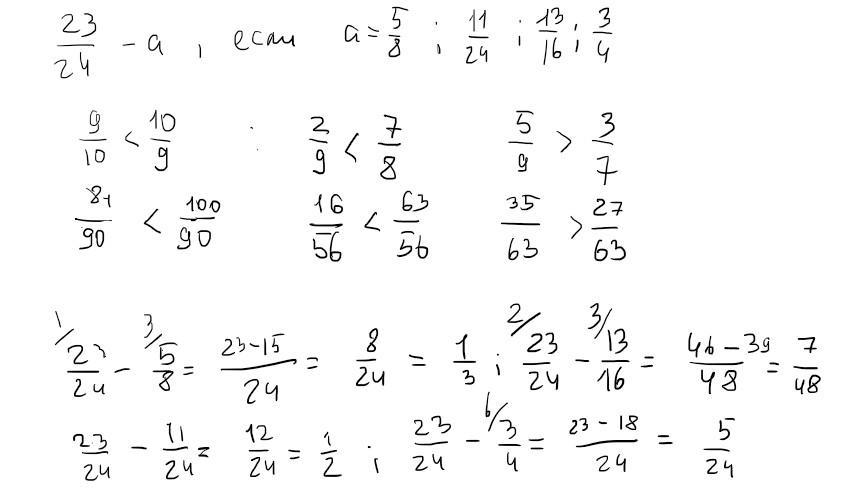 23/24 - a , если a = 5/8 ; 11/24 ; 13/16 ; 3/4
9/10 < 10/9 : 2/9 < 7/8 5/9 > 3/7
81/90 < 100/90 16/56 < 63/56 35/63 > 27/63
1/ 23/24 - 3/ 5/8 = 23-15/24 = 8/24 = 1/3 ; 2/ 23/24 - 3/ 13/16 = 46-39/48 = 7/48
23/24 - 11/24 = 12/24 = 1/2 ; 23/24 - 6/ 3/4 = 23-18/24 = 5/24